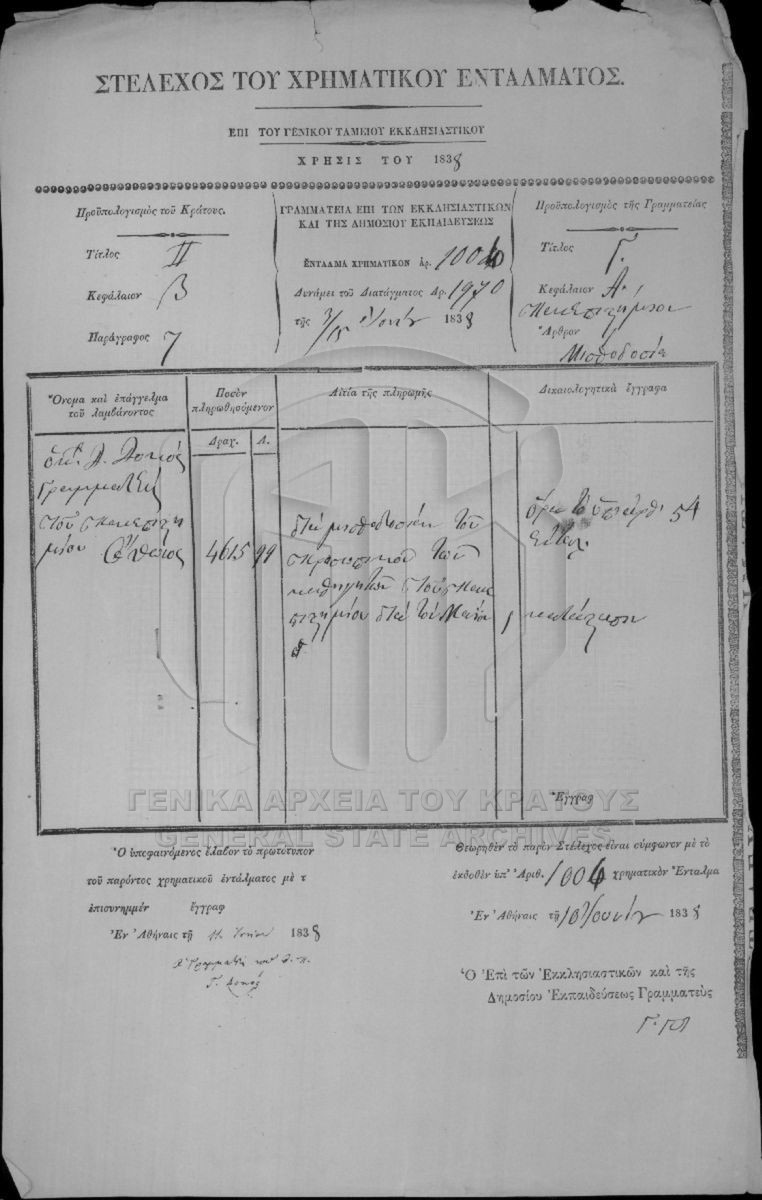 ΣΤΕΛΕΧΟΣ ΤΟΥ ΧΡΗΜΑΤΙΚΟΥ ΕΝΤΑΛΜΑΤΟΣ.
ΕΠΙ ΤΟΥ ΓΕΝΙΚΟΥ ΤΑΜΕΙΟΥ ΕΚΚΛΗΣΙΑΣΤΙΚΟΥ
ΧΡΗΣΙΣ ΤΟΥ 1838
Προϋπολογισμὸς τοῦ Κράτους.
Τίτλος II
Κεφάλαιον β
Παράγραφος 7
ΓΡΑΜΜΑΤΕΙΑ ΕΠΙ ΤΩΝ ΕΚΚΛΗΣΙΑΣΤΙΚΩΝ
ΚΑΙ ΤΗΣ ΔΗΜΟΣΙΟΥ ΕΚΠΑΙΔΕΥΣΕΩΣ
ΕΝΤΑΛΜΑ ΧΡΗΜΑΤΙΚΟΝ ἀρ.
Δυνάμει τοῦ Διατάγματος Ἀρ. 1970
τῆς 3/15 Ἰουνίου 1838
Προϋπολογισμὸς τῆς Γραμματείας
Τίτλος Γ.
Κεφάλαιον Α.
Πανεπιστήμιον
Ἄρθρον
Μισθοδοσία
Ὄνομα καὶ ἐπάγγελμα
τοῦ λαμβάνοντος
Ποσὸν
πληρωθησόμενον
Δραχ. Λ.
Αἰτία τῆς πληρωμῆς
Δικαιολογητικὰ ἔγγραφα
Γραμματεὺς
τοῦ Πανεπιστη
μίου Ὄθωνος
4615 99
διὰ μισθοδοσίαν τοῦ
προσωπικοῦ τῶν
καθηγητῶν τοῦ Πανε
πιστημίου διὰ τὸν Μάϊον
ὅρα τὸ ὑπ' ἀριθ 54
ἔνταλ
1 κατάστασιν
Ἔγγραφ
ΓΕΝΙΚΑ ΑΡΧΕΙΑ ΤΟΥ ΚΡΑΤΟΥΣ
GENERAL STATE ARCHIVES
Ὁ ὑπεφαινόμενος ἔλαβον τὸ πρωτότυπον
τοῦ παρόντος χρηματικοῦ ἐντάλματος μὲ τ
ἐπισυνημμέν ἔγγραφ
Ἐν Ἀθήναις τῇ 11 Ἰουνίου 1838
Ὁ Γραμματεὺς τοῦ
Θεωρηθὲν τὸ παρὸν Στέλεχος εἶναι σύμφωνον μὲ τὸ
ἐκδοθὲν ὑπ' Ἀριθ. 1004 χρηματικὸν Ἔνταλμα
Ἐν Ἀθήναις τῇ 10 Ἰουνίου 1838
Ὁ Ἐπὶ τῶν Ἐκκλησιαστικῶν καὶ τῆς
Δημοσίου Ἐκπαιδεύσεως Γραμματεὺς